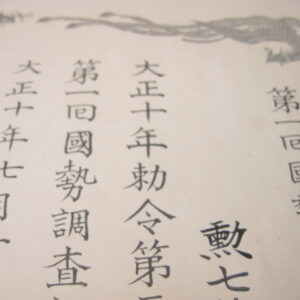 第一回國
勲七
大正十年勅令第
第一回國勢調査
大正十年七月